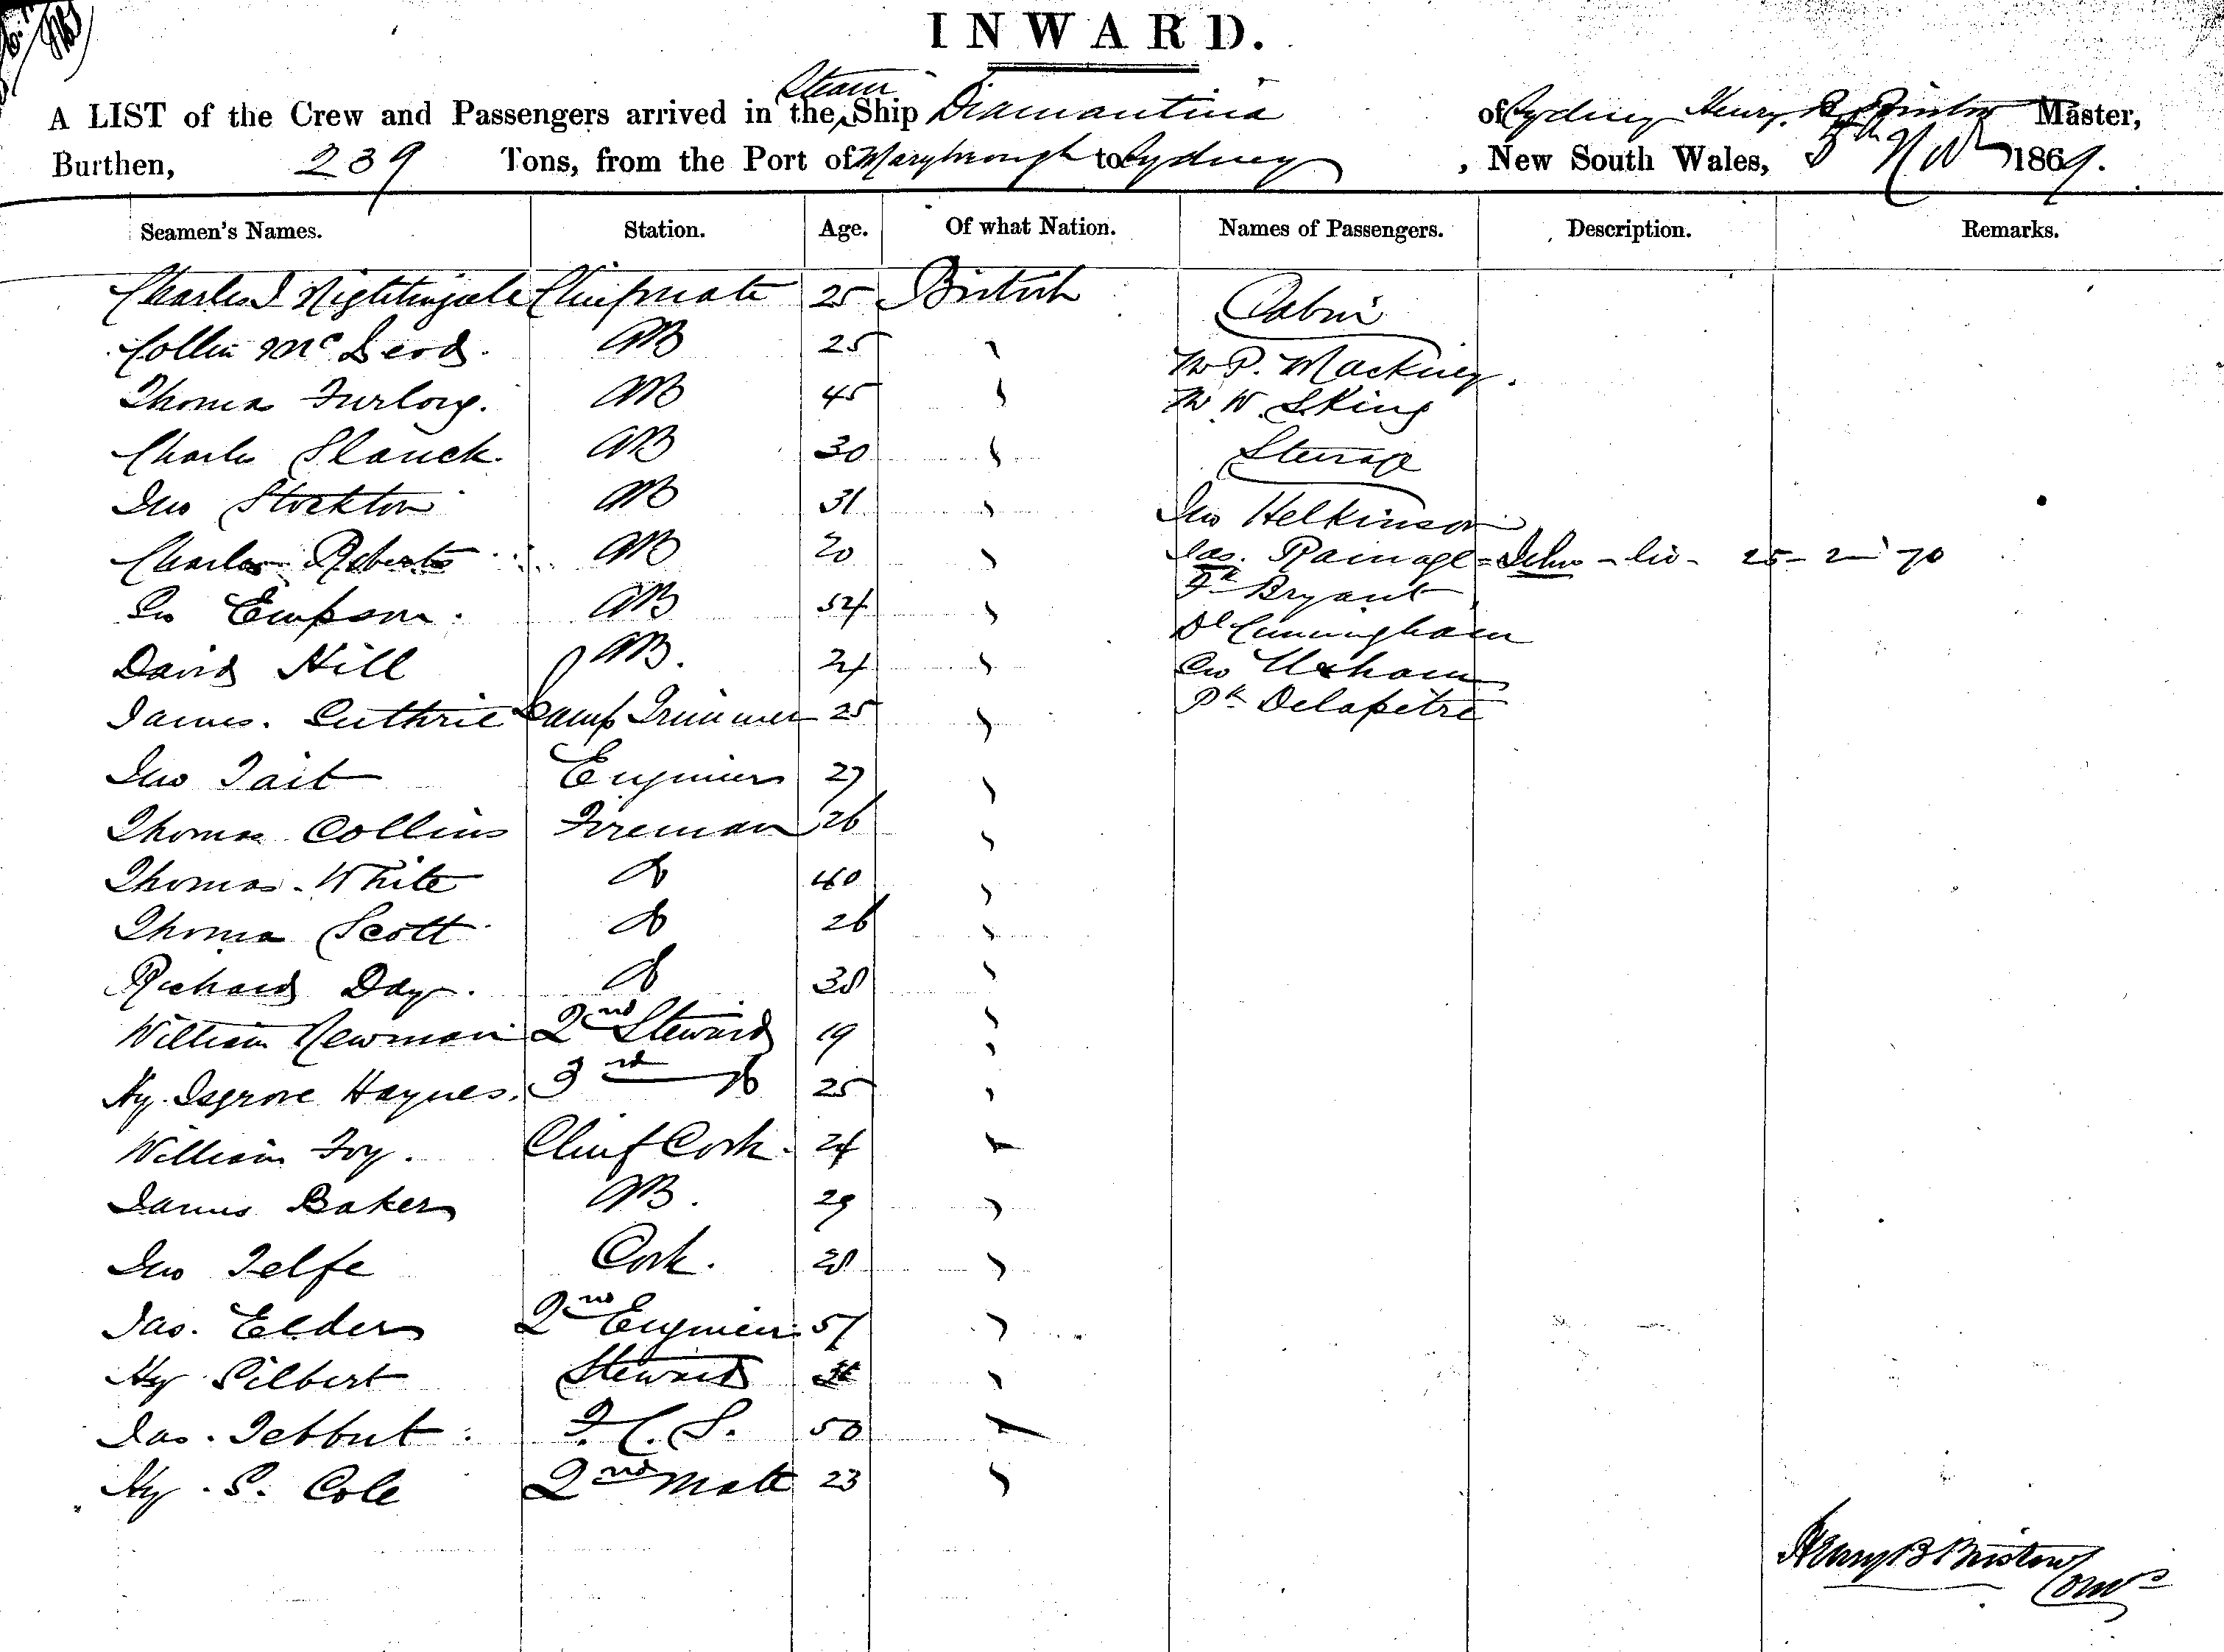 INWARD.
A LIST of the Crew and Passengers arrived in the Steam Ship Diamantina of Sydney Henry B Bristow Master,
Burthen, 239 Tons, from the Port of Maryborough to Sydney, New South Wales, 5th Novr 1869.
Seamen's Names. Station. Age. Of what Nation. Names of Passengers. Description. Remarks.
Charles J Nightingale Chief mate 25 British Cabin
Collin McLeod. AB 25 " Mr P. Mackney.
Thomas Furlong. AB 45 " Mr W. S King
Charles Slauck. AB 30 " Steerage
Jno Stockton AB 31 " Jno Helkinson
Charles Roberts AB 20 " Jas. Ramage = John - liv - 25 - 2 - 70
Fk Bryant
Geo Empson. AB 54 " Dl Cunningham
David Hill AB. 24 " Geo Usham
James. Guthrie Lamp Trimmer 25 " Pk Delapetre
Jno Tait Engineer 27 "
Thomas Collins Fireman 26 "
Thomas White Do 40 "
Thomas Scott Do 26 "
Richard Day. Do 38 "
William Newman 2nd Steward 19 "
Hy. Isgrove Haynes. 3rd Do 25 "
William Foy. Chief Cook. 24 "
James Baker AB. 29 "
Jno Telfe Cook. 28 "
Jas. Elder 2nd Engineer 51 "
Hy Gilbert Steward "
Jas. Tebbut. F.C.S. 50 "
Hy. S. Cole 2nd Mate 23 "
Henry B Bristow
Comr